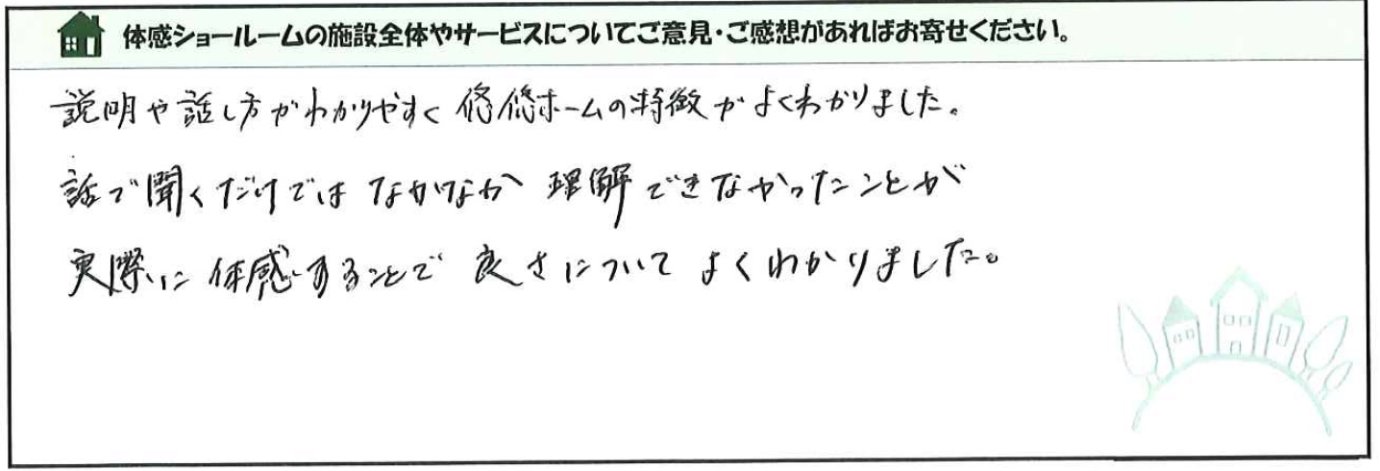 体感ショールームの施設全体やサービスについてご意見・ご感想があればお寄せください。
説明や話し方がわかりやすく悠悠ホームの特徴がよくわかりました。
話で聞くだけではなかなか理解できなかったことが
実際に体感することで良さについてよくわかりました。